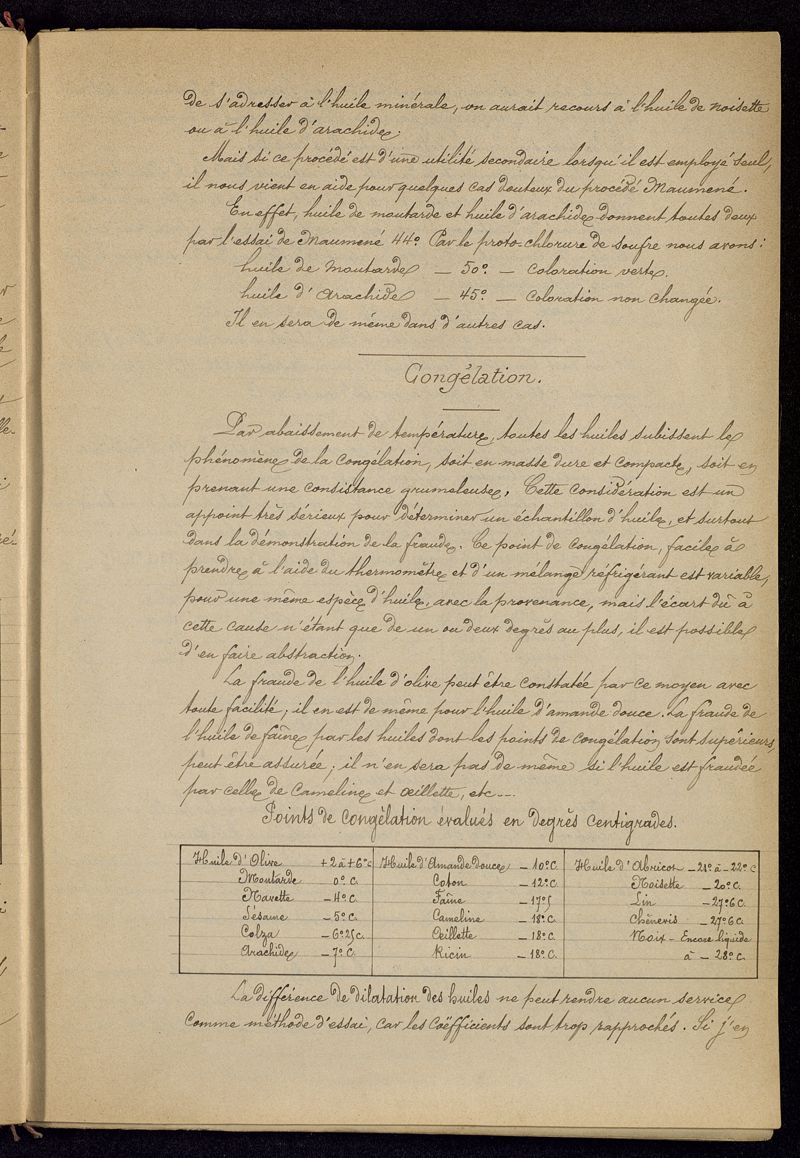 de s'adresser à l'huile minérale, on aurait recours à l'huile de noisette
ou à l'huile d'arachide.
Mais si ce procédé est d'une utilité secondaire lorsqu'il est employé seul,
il nous vient en aide pour quelques cas douteux du procédé Maumené.
En effet, huile de moutarde et huile d'arachide donnent toutes deux
par l'essai de Maumené 44°. Par le proto-chlorure de soufre nous avons :
huile de Moutarde — 50° — coloration verte.
huile d'Arachide — 45° — coloration non changée.
Il en sera de même dans d'autres cas.
Congélation.
Par abaissement de température, toutes les huiles subissent le
phénomène de la congélation, soit en masse dure et compacte, soit en
prenant une consistance grumeleuse. Cette considération est un
appoint très sérieux pour déterminer un échantillon d'huile, et surtout
dans la démonstration de la fraude. Ce point de congélation, facile à
prendre à l'aide du thermomètre et d'un mélange réfrigérant est variable,
pour une même espèce d'huile, avec la provenance, mais l'écart dû à
cette cause n'étant que de un ou deux degrés au plus, il est possible
d'en faire abstraction.
La fraude de l'huile d'olive peut être constatée par ce moyen avec
toute facilité ; il en est de même pour l'huile d'amande douce. La fraude de
l'huile de faîne par les huiles dont les points de congélation sont supérieurs,
peut être assurée ; il n'en sera pas de même si l'huile est fraudée
par celle de Cameline et œillette, etc...
Points de congélation évalués en Degrés Centigrades.
Huile d'Olive +2 à +6°C Huile d'Amande douce — 10°C. Huile d'Abricot — 21° à — 22°C
Moutarde 0°C. Coton — 12°C. Noisette — 20°C.
Navette — 4°C. Faîne — 17°5 Lin — 27°6C.
Sésame — 5°C. Cameline — 18°C. Chènevis — 27°6C.
Colza — 6°25C. Œillette — 18°C. Noix — Encore liquide
Arachide — 7°C. Ricin — 18°C. à — 28°C.
La différence de dilatation des huiles ne peut rendre aucun service
comme méthode d'essai, car les coëfficients sont trop rapprochés. Si j'en